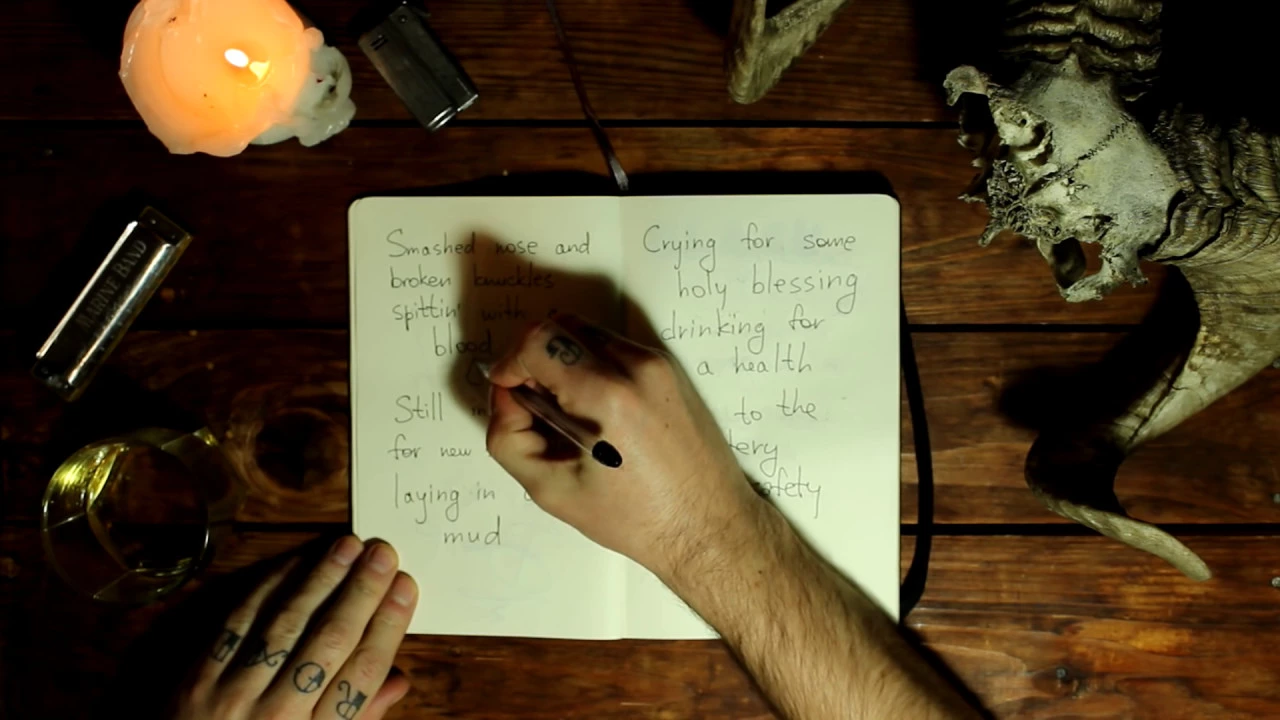 MARINE BAND
Smashed nose and
broken knuckles
spittin' with a
blood
Still
for new
laying in
mud
Crying for some
holy blessing
drinking for
a health
to the
safety